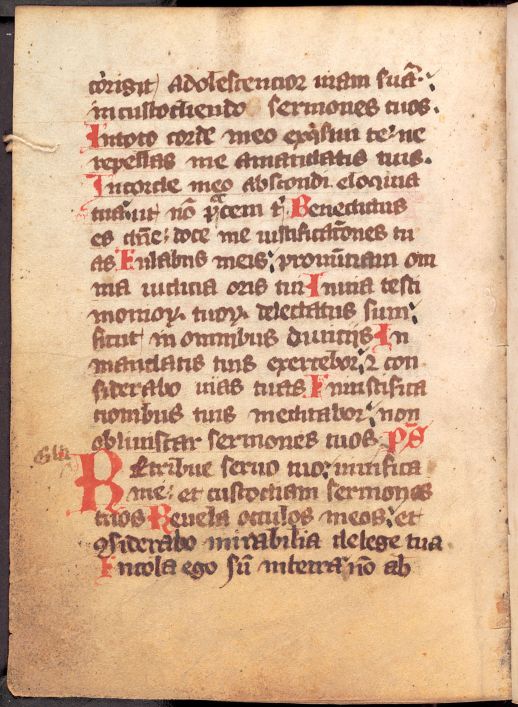 co̅rigit adolescencior uiam suā
in custodiendo sermones tuos.
In toto corde meo exq̇siui te: ne
repellas me amandatis tuis.
In corde meo abscondi eloquia
tua: ut nō pccem t̄. Benedictus
es dn̄e: doce me iustificat̄ones tu
as. In labiis meis: pronūtiaui om
nia iudicia oris tui. In uia testi
moniorꝝ tuorꝝ delectatus sum:
sicut in omnibus diuitiis. In
mandatis tuis exercebor: ⁊ con
siderabo uias tuas. In iustifica
tionibus tuis meditabor: non
obliuiscar sermones tuos. p̄s
Gl̄ia
Retribue seruo tuo: uiuifica
me: et custodiam sermones
tuos. Reuela occulos meos: et
ꝯsiderabo mirabilia delege tua
Incola ego sū interra: nō ab